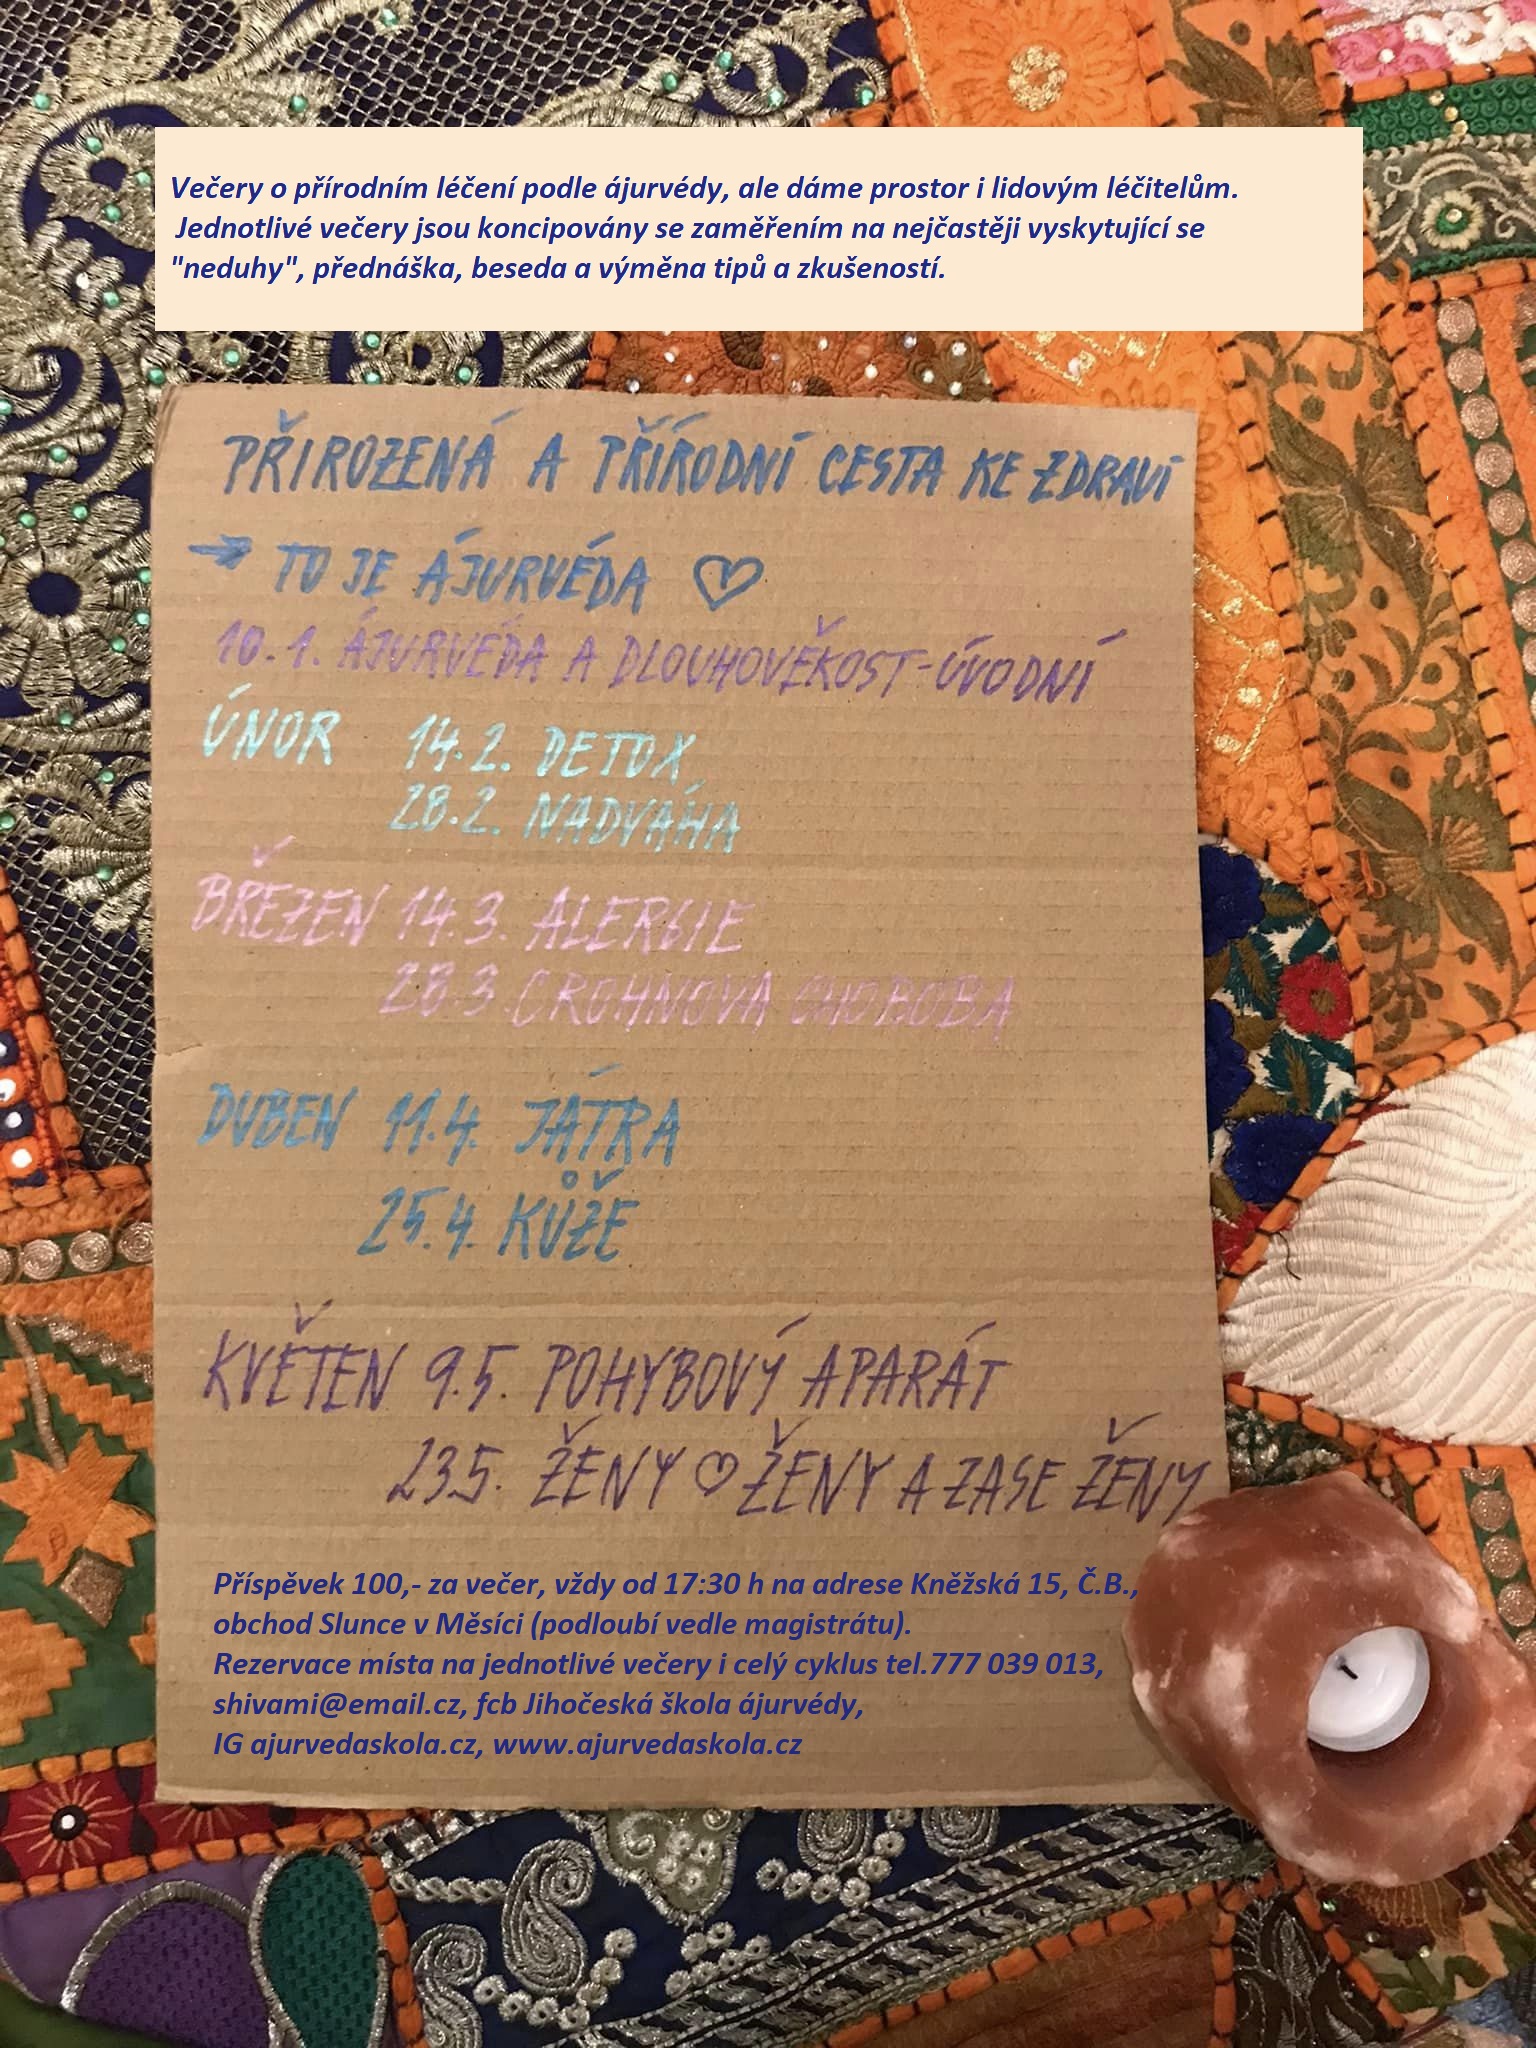 Večery o přírodním léčení podle ájurvédy, ale dáme prostor i lidovým léčitelům.
Jednotlivé večery jsou koncipovány se zaměřením na nejčastěji vyskytující se
"neduhy", přednáška, beseda a výměna tipů a zkušeností.
PŘIROZENÁ A PŘÍRODNÍ CESTA KE ZDRAVÍ
→ TO JE ÁJURVÉDA ♡
10.1. ÁJURVÉDA A DLOUHOVĚKOST-ÚVODNÍ
ÚNOR 14.2. DETOX
28.2. NADVÁHA
BŘEZEN 14.3. ALERGIE
28.3. CROHNOVA CHOBOBA
DUBEN 11.4. JÁTRA
25.4. KŮŽE
KVĚTEN 9.5. POHYBOVÝ APARÁT
23.5. ŽENY ♡ ŽENY A ZASE ŽENY
Příspěvek 100,- za večer, vždy od 17:30 h na adrese Kněžská 15, Č.B.,
obchod Slunce v Měsíci (podloubí vedle magistrátu).
Rezervace místa na jednotlivé večery i celý cyklus tel.777 039 013,
shivami@email.cz, fcb Jihočeská škola ájurvédy,
IG ajurvedaskola.cz, www.ajurvedaskola.cz